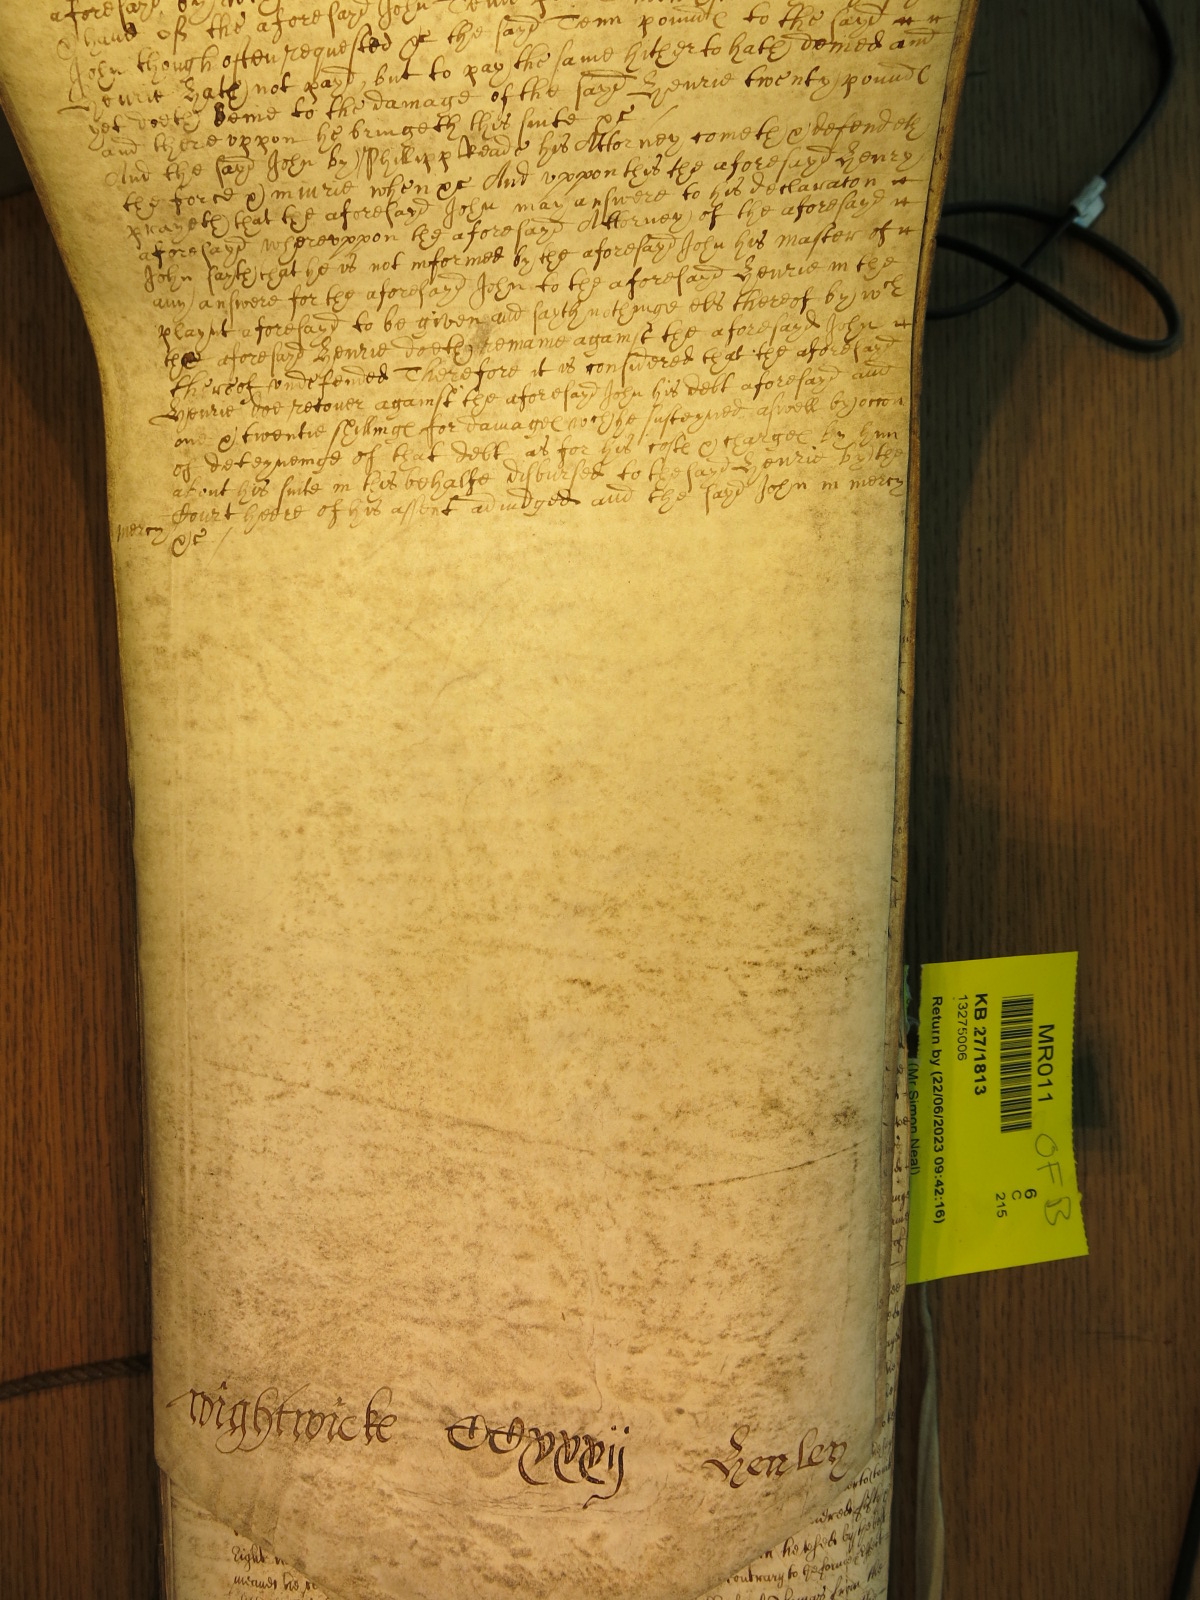 aforesayd, by
& have of the aforesayd John Tenn
John though often requested &c the sayd Tenn pounds to the sayd
Henrie hath not payd, but to pay the same hitherto hath denied and
yet doeth denie to the damage of the sayd Henrie twenty pounds
and thereuppon he bringeth this suite &c
And the sayd John by Phillipp Reade his Attorney cometh & defendeth
the force & iniurie when &c And uppon this the aforesayd Henry
prayeth that the aforesayd John may answere to his declaraton
aforesayd whereuppon the aforesayd Attorney of the aforesayd
John sayth that he is not informed by the aforesayd John his master of
any answere for the aforesayd John to the aforesayd Henrie in the
playnt aforesayd to be given and sayth nothinge els thereof by wch
the aforesayd Henrie doeth remaine against the aforesayd John
thereof undefended Therefore it is considered that the aforesayd
Henrie doe recover against the aforesayd John his debt aforesayd and
one & twentie shillings for damages wch he susteyned aswell by occon
of deteyneinge of that debt as for his costs & charges by him
about his suite in this behalfe disbursed to the sayd Henrie by the
Court heere of his assent adiudged and the sayd John in mercy
mercy &c
Wightwicke CCxxxij Henley
MR011
OFB
KB 27/1813
13275006
6
C
215
Return by (22/06/2023 09:42:16)
(Mr Simon Neal)
right
meanes he
contrary to the former
from the